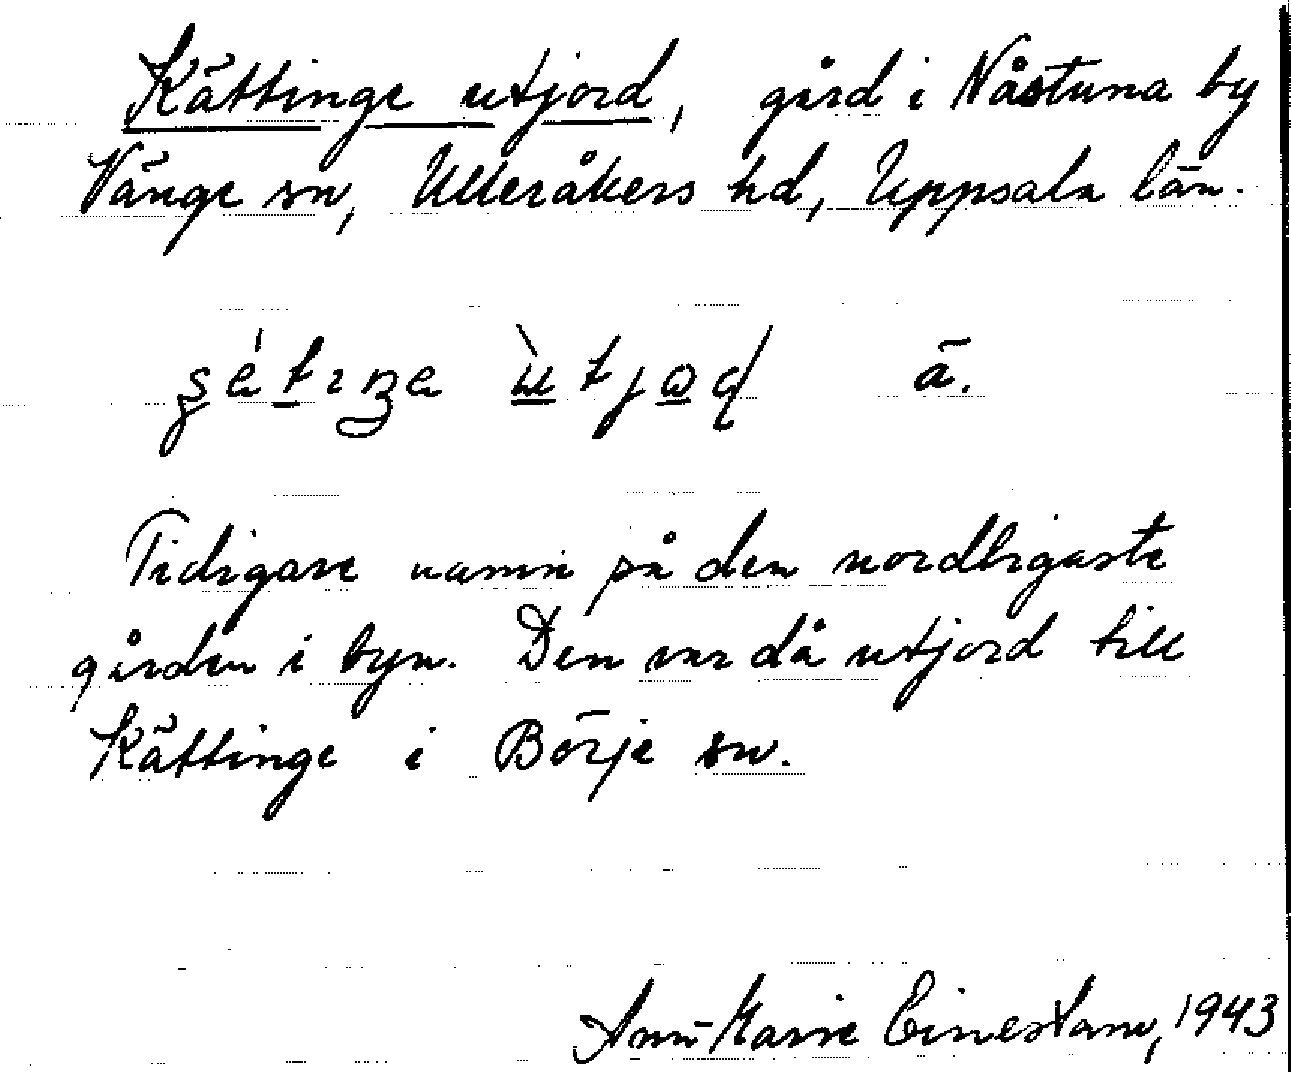 Kättinge utjord, gård i Nåstuna by
Vänge sn, Ulleråkers hd, Uppsala län.
ä.
Tidigare namn på den nordligaste
gården i byn. Den var då utjord till
Kättinge i Börje sn.
Ann-Marie Einestam, 1943